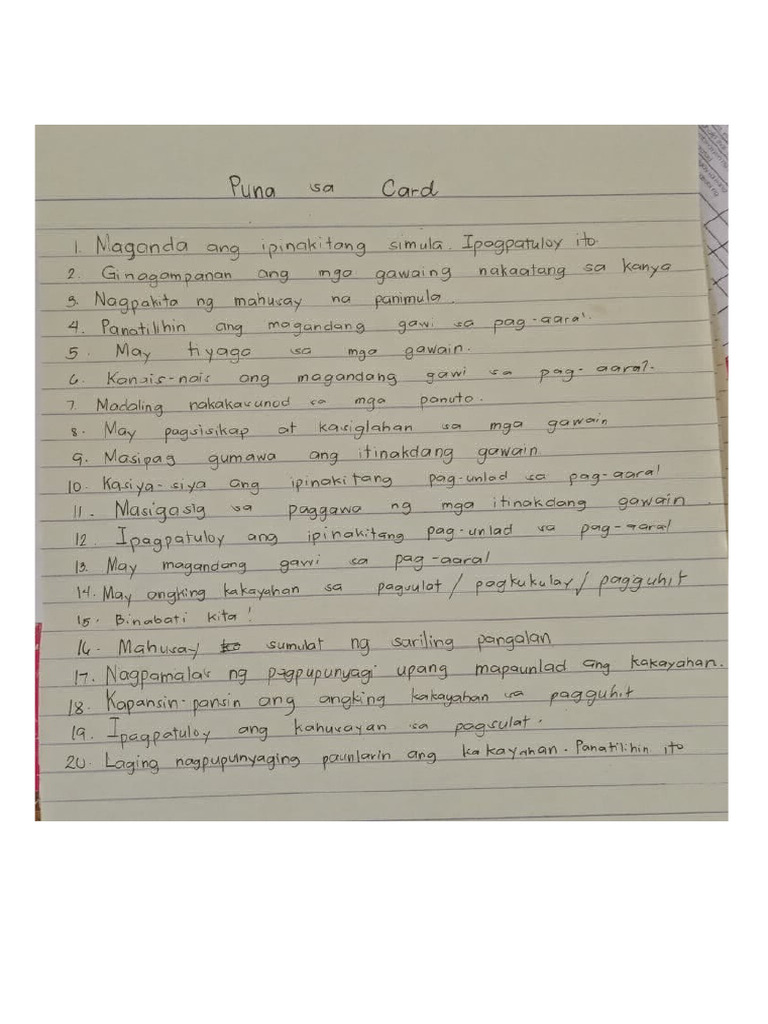 Puna sa Card
1. Maganda ang ipinakitang simula. Ipagpatuloy ito.
2. Ginagampanan ang mga gawaing nakaatang sa kanya
3. Nagpakita ng mahusay na panimula.
4. Panatilihin ang magandang gawi sa pag-aaral.
5. May tiyaga sa mga gawain.
6. Kanais-nais ang magandang gawi sa pag-aaral.
7. Madaling nakakasunod sa mga panuto.
8. May pagsisikap at kasiglahan sa mga gawain
9. Masipag gumawa ang itinakdang gawain
10. Kasiya-siya ang ipinakitang pag-unlad sa pag-aaral
11. Masigasig sa paggawa ng mga itinakdang gawain
12. Ipagpatuloy ang ipinakitang pag-unlad sa pag-aaral
13. May magandang gawi sa pag-aaral
14. May angking kakayahan sa pagsulat / pagkukulay / pagguhit
15. Binabati kita!
16. Mahusay sumulat ng sariling pangalan
17. Nagpamalas ng pagpupunyagi upang mapaunlad ang kakayahan.
18. Kapansin-pansin ang angking kakayahan sa pagguhit
19. Ipagpatuloy ang kahusayan sa pagsulat.
20. Laging nagpupunyaging paunlarin ang kakayahan. Panatilihin ito